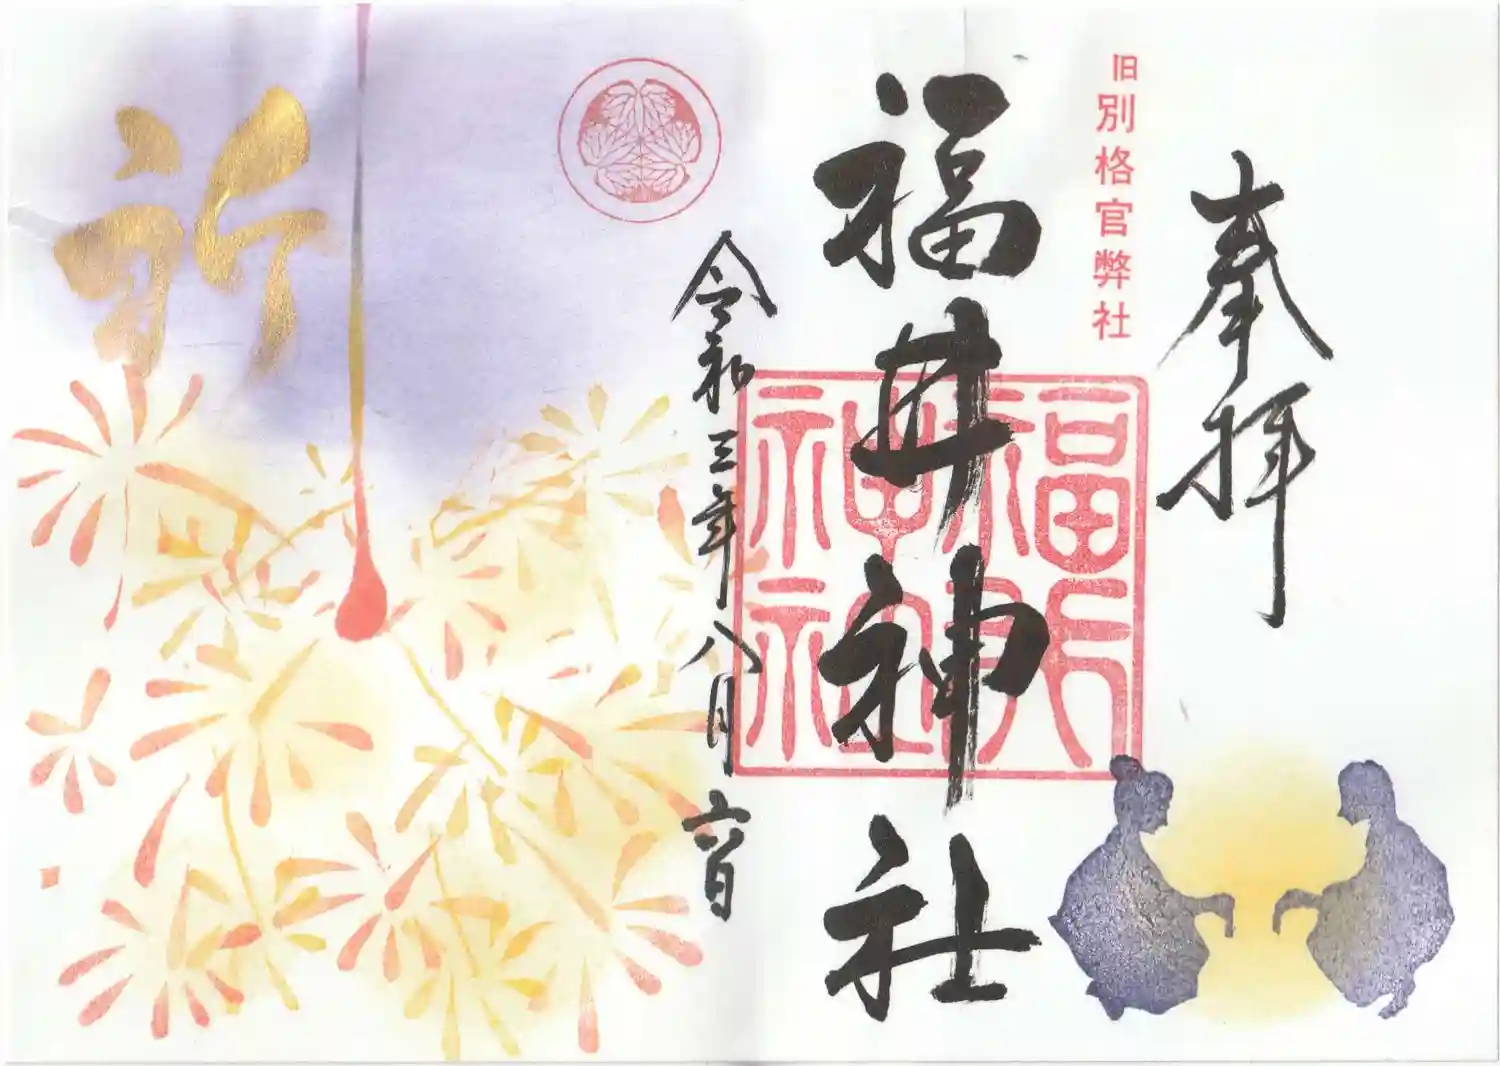 奉拝
旧別格官弊社
福井神社
福井神社
令和三年八月六日
祈